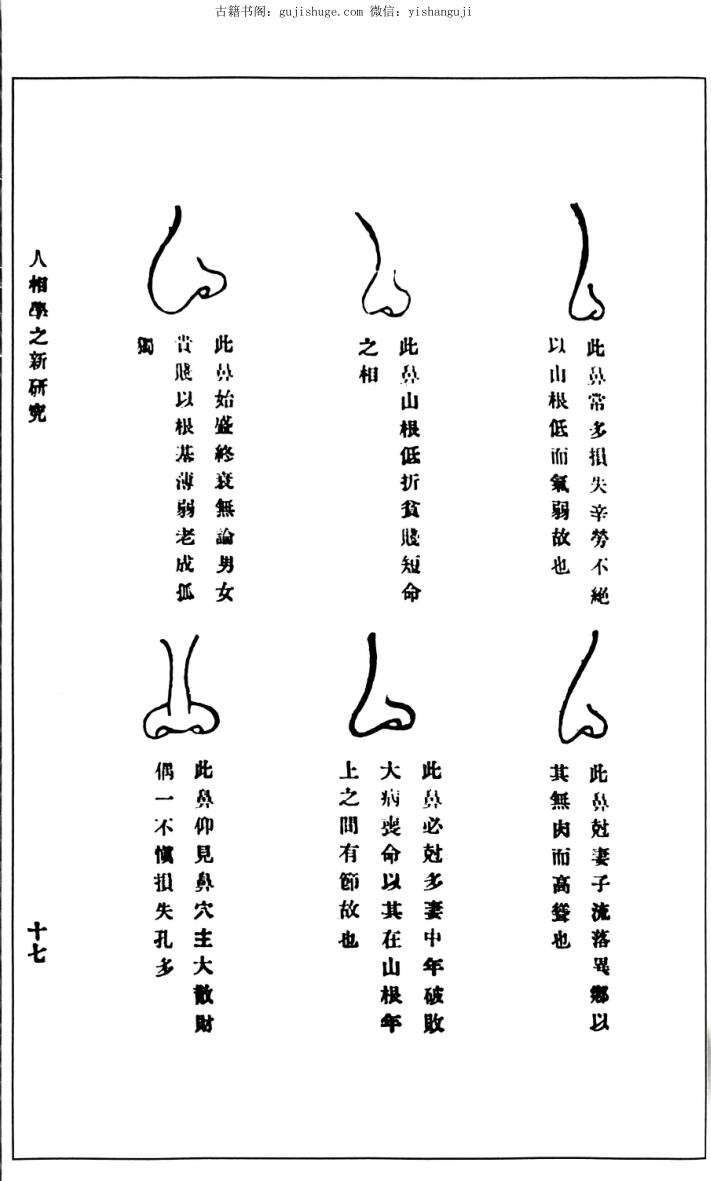 古籍书阁：gujishuge.com 微信：yishanguji
此鼻常多損失辛勞不絕
以山根低而氣弱故也
此鼻山根低折貧賤短命
之相
此鼻始盛終衰無論男女
貴賤以根基薄弱老成孤
獨
此鼻尅妻子流落異鄉以
其無肉而高聳也
此鼻必尅多妻中年破敗
大病喪命以其在山根年
上之間有節故也
此鼻仰見鼻穴主大散財
偶一不慎損失孔多
人相學之新研究
十七